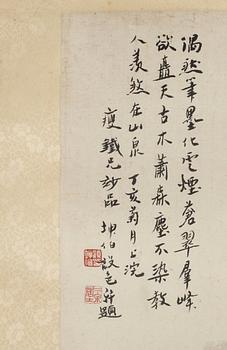 偶然筆墨化雲煙蒼翠群峰
欲矗天古木蕭森塵不染教
人羨煞在山泉 丁亥菊月上浣
瘦鐵兄妙品
坤伯設色并題